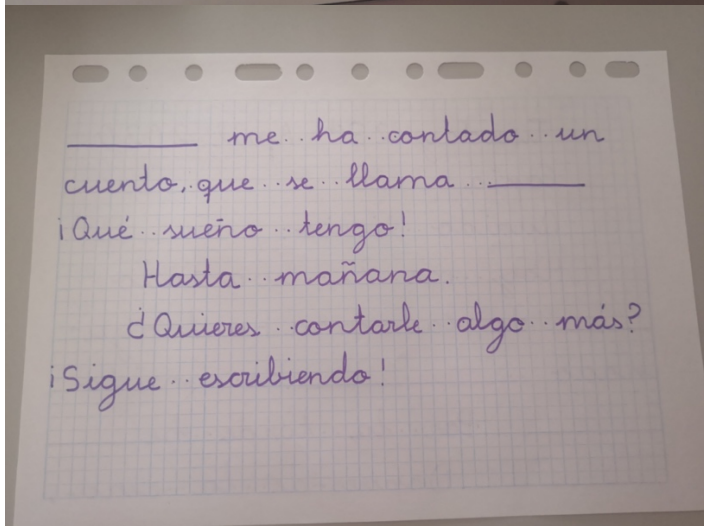 __________ me ha contado un
cuento, que se llama ________
¡Qué sueño tengo!
Hasta mañana.
¿Quieres contarle algo más?
¡Sigue escribiendo!